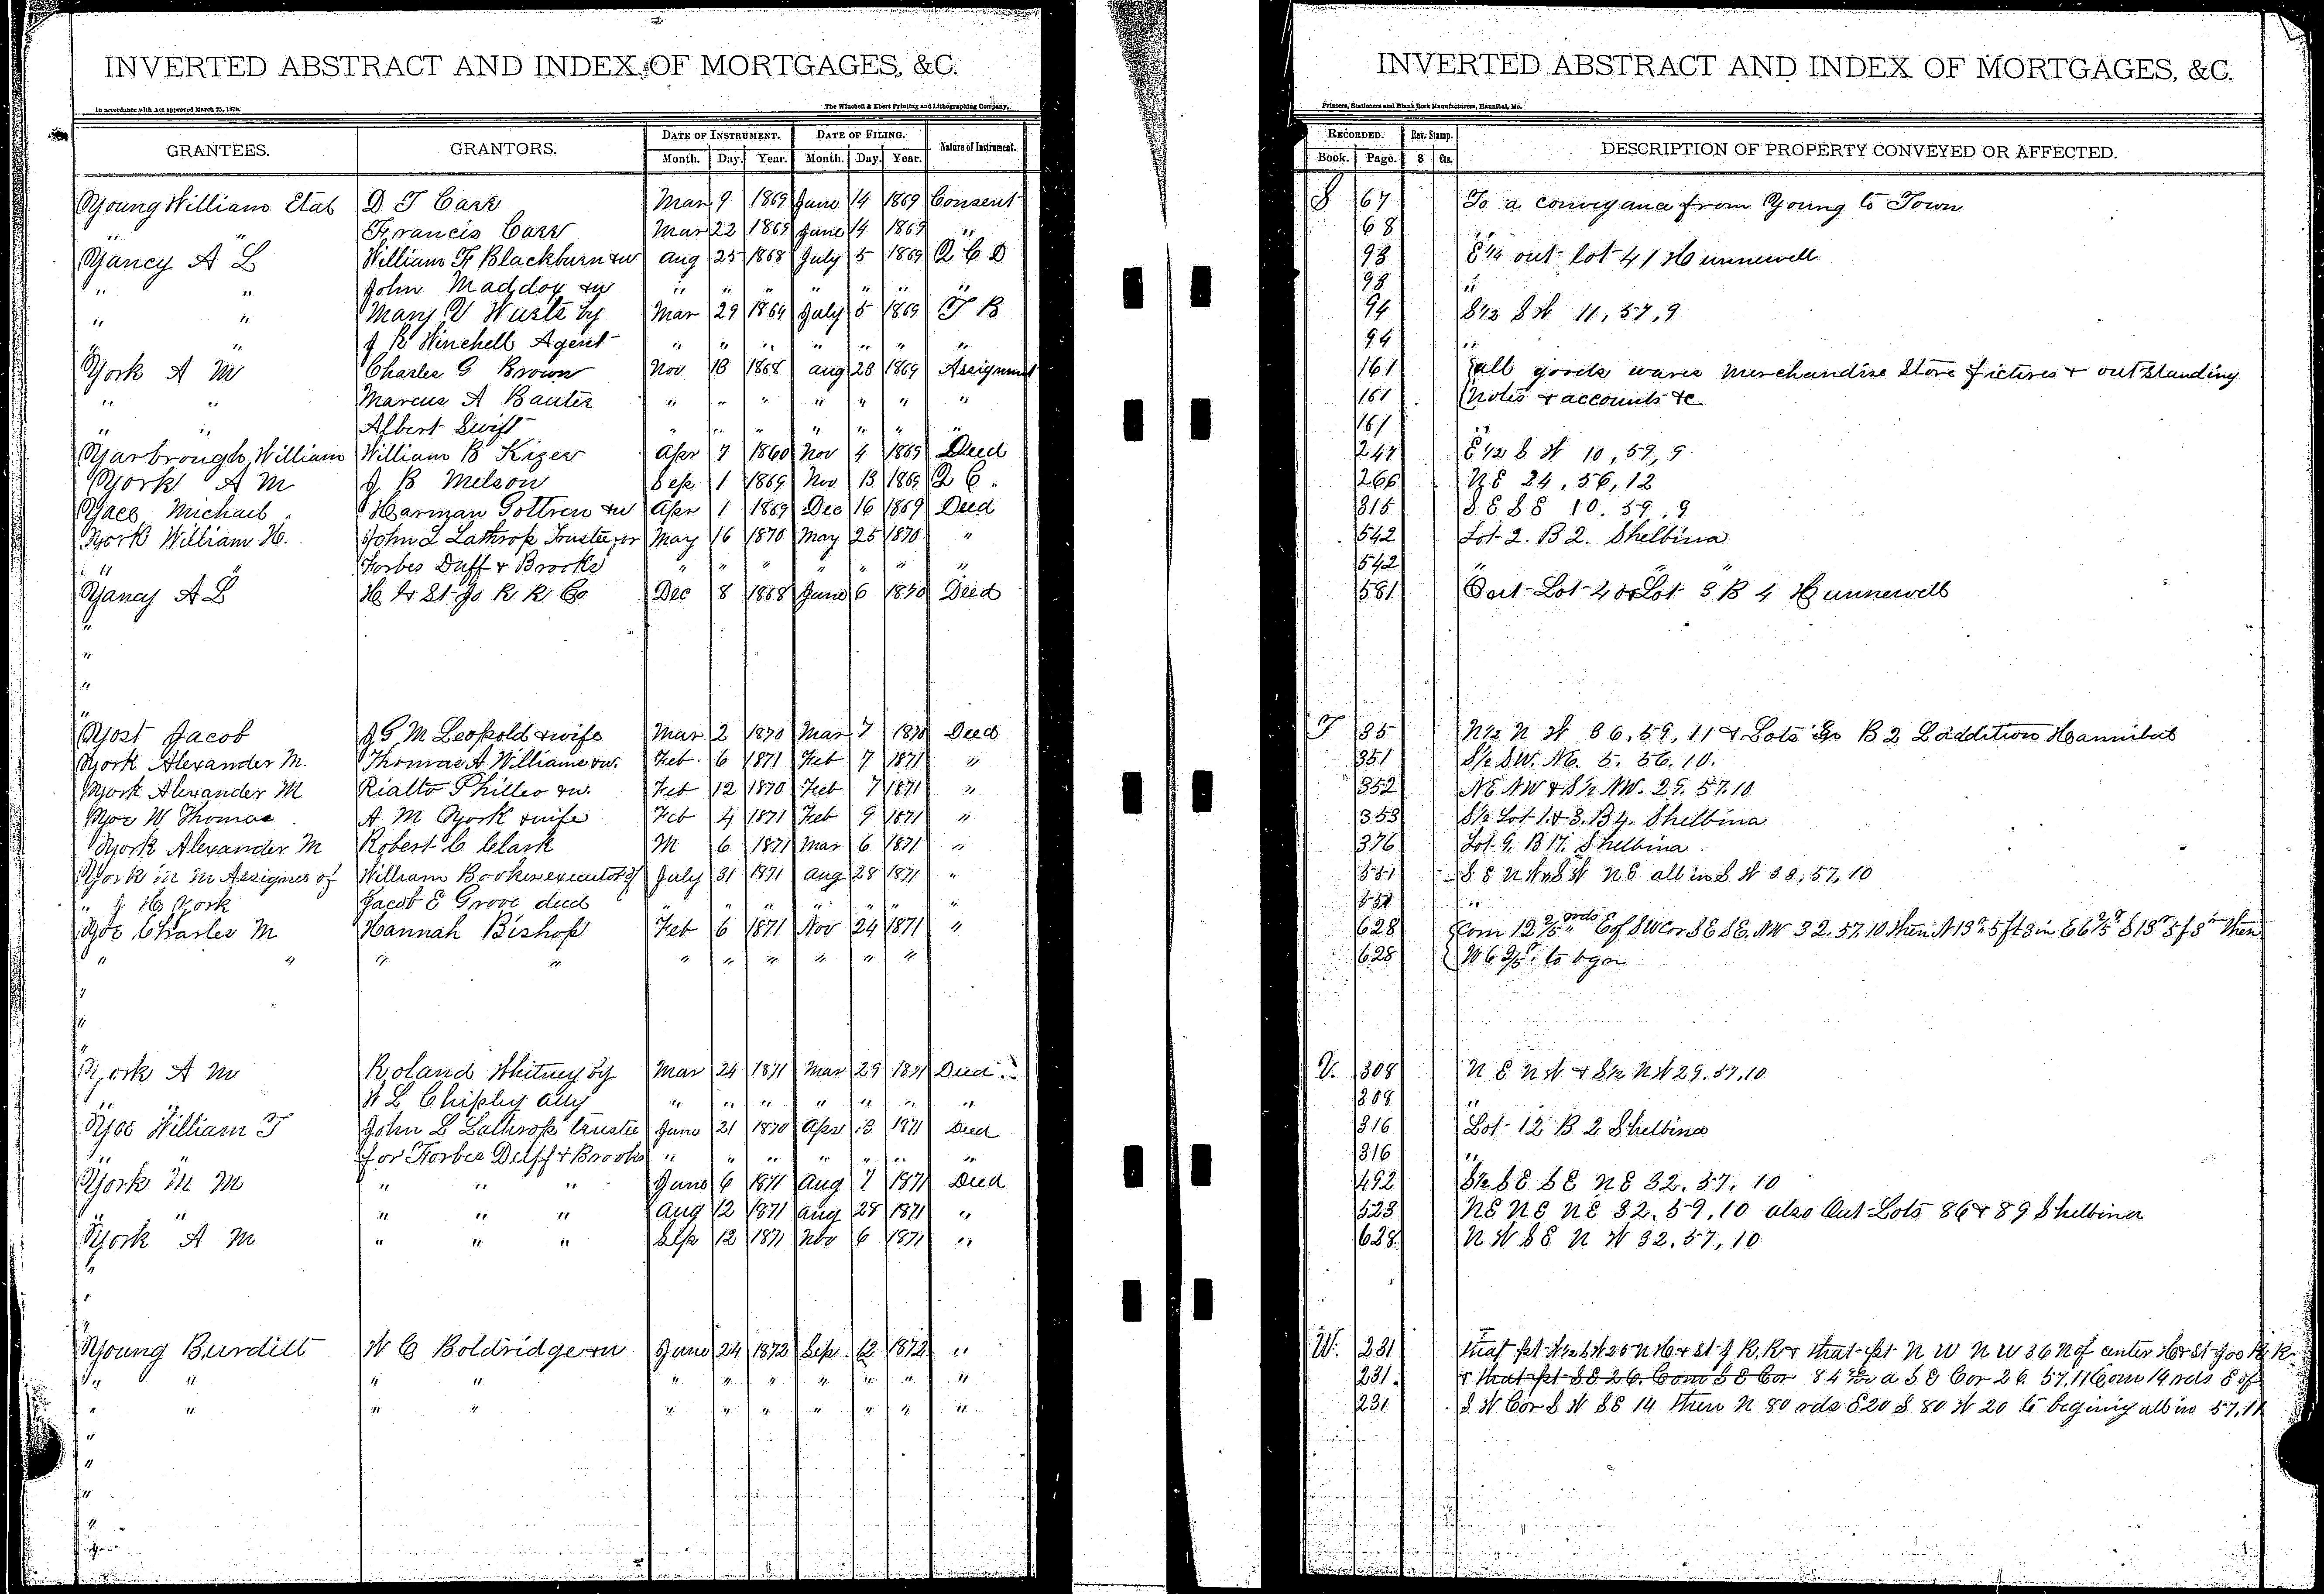 INVERTED ABSTRACT AND INDEX OF MORTGAGES, &C.
In accordance with Act approved March 25, 1870. The Winchell & Ebert Printing and Lithographing Company,
GRANTEES. GRANTORS. DATE OF INSTRUMENT. DATE OF FILING. Nature of Instrument.
Month. Day. Year. Month. Day. Year.
Young William Etal D T Carr Mar 9 1869 June 14 1869 Consent
" " Francis Carr Mar 22 1869 June 14 1869 "
Yancy A L William F Blackburn &w Aug 25 1868 July 5 1869 Q C D
" " John Maddox &w " " " " " " "
" " Mary V by Mar 29 1869 July 5 1869 T B
" " J R Winchell Agent " " " " " " "
York A M Charles G Brown Nov 13 1868 Aug 28 1869 Assignment
" " Marcus A " " " " " " "
" " Albert Swift " " " " " " "
Yarbrough William William B Kizer Apr 7 1860 Nov 4 1869 Deed
York A M J B Melson Sep 1 1869 Nov 13 1869 Q C.
Michael Harman &w Apr 1 1869 Dec 16 1869 Deed
York William H. John L Lathrop Trustee for May 16 1870 May 25 1870 "
" Forbes Duff & Brooks " " " " " " "
Yancy A L H & St Jo R R Co Dec 8 1868 June 6 1870 Deed
"
"
"
"
Yost Jacob J G M Leopold & wife Mar 2 1870 Mar 7 1870 Deed
York Alexander M. Thomas A Williams &w. Feb. 6 1871 Feb 7 1871 "
York Alexander M Rialto Philleo &w. Feb 12 1870 Feb 7 1871 "
Yoe W Thomas A M York & wife Feb 4 1871 Feb 9 1871 "
York Alexander M Robert C Clark M 6 1871 Mar 6 1871 "
York M M Assignee of William Booker executor of July 31 1871 Aug 28 1871 "
" J H York Jacob E Grove decd " " " " " " "
Yoe Charles M Hannah Bishop Feb 6 1871 Nov 24 1871 "
" " " " " " " " " " "
"
"
"
York A M Roland Whitney by Mar 24 1871 Mar 29 1871 Deed
" " W L Chipley atty " " " " " " "
Yoe William T John L Lathrop trustee June 21 1870 Apr 13 1871 Deed
" " for Forbes Duff & Brooks " " " " " " "
York M M " " " June 6 1871 Aug 7 1871 Deed
" " " " " Aug 12 1871 Aug 28 1871 "
York A M " " " Sep 12 1871 Nov 6 1871 "
"
"
"
Young Burditt W C Boldridge &w June 24 1872 Sep 12 1872 "
" " " " " " " " " " "
" " " " " " " " " " "
"
"
"
"
INVERTED ABSTRACT AND INDEX OF MORTGAGES, &C.
Printers, Stationers and Blank Book Manufacturers, Hannibal, Mo.
RECORDED. Rev. Stamp. DESCRIPTION OF PROPERTY CONVEYED OR AFFECTED.
Book. Page. $ Cts.
S 67 To a conveyance from Young to Town
68 "
93 E 1/4 out lot 41 Hunnewell
93 "
94 S 1/2 S W 11, 57, 9
94 "
161 {all goods wares merchandise Store fictires & outstanding
161 {notes & accounts &c
161 "
247 E 1/2 S W 10, 59, 9
266 N E 24, 56, 12
315 S E S E 10. 59. 9
542 Lot 2. B 2. Shelbina
542 " "
581 Out-Lot 40 & Lot 3 B 4 Hunnewell
T 35 N 1/2 N W 36, 59, 11 & Lots B 2 L addition Hannibal
351 S 1/2 S.W. N E. 5. 56. 10.
352 N E N W & S 1/2 N W. 29. 57. 10
353 S 1/2 Lot 1. & 3. B 4. Shelbina
376 Lot 9. B 17. Shelbina
551 S E N W & S W N E all in S W 33, 57, 10
551 "
628 {Com 12 2/5 rds E of SW cor S E S E. NW 32. 57. 10 then N 13 r 5 ft 3 in E 6 2/5 r S 13 r 5 f 3 in then
628 {W 6 2/5 r to bgn
V. 308 N E N W & S 1/2 N W 29. 57. 10
308 "
316 Lot 12 B 2 Shelbina
316 "
492 S 1/2 S E S E N E 32. 57, 10
523 N E N E N E 32, 59, 10 also Out-Lots 86 & 89 Shelbina
628 N W S E N W 32. 57, 10
W. 231 that pt W 1/2 S W 25 N H & St J R. R & that pt N W N W 36 N of center H & St Joe R R.
231. & that pt S E 26. Com S E Cor 84 a S E Cor 26. 57. 11 Com 14 rds E of
231 S W Cor S W S E 14 then N 80 rds E 20 S 80 W 20 to begining all in 57. 11